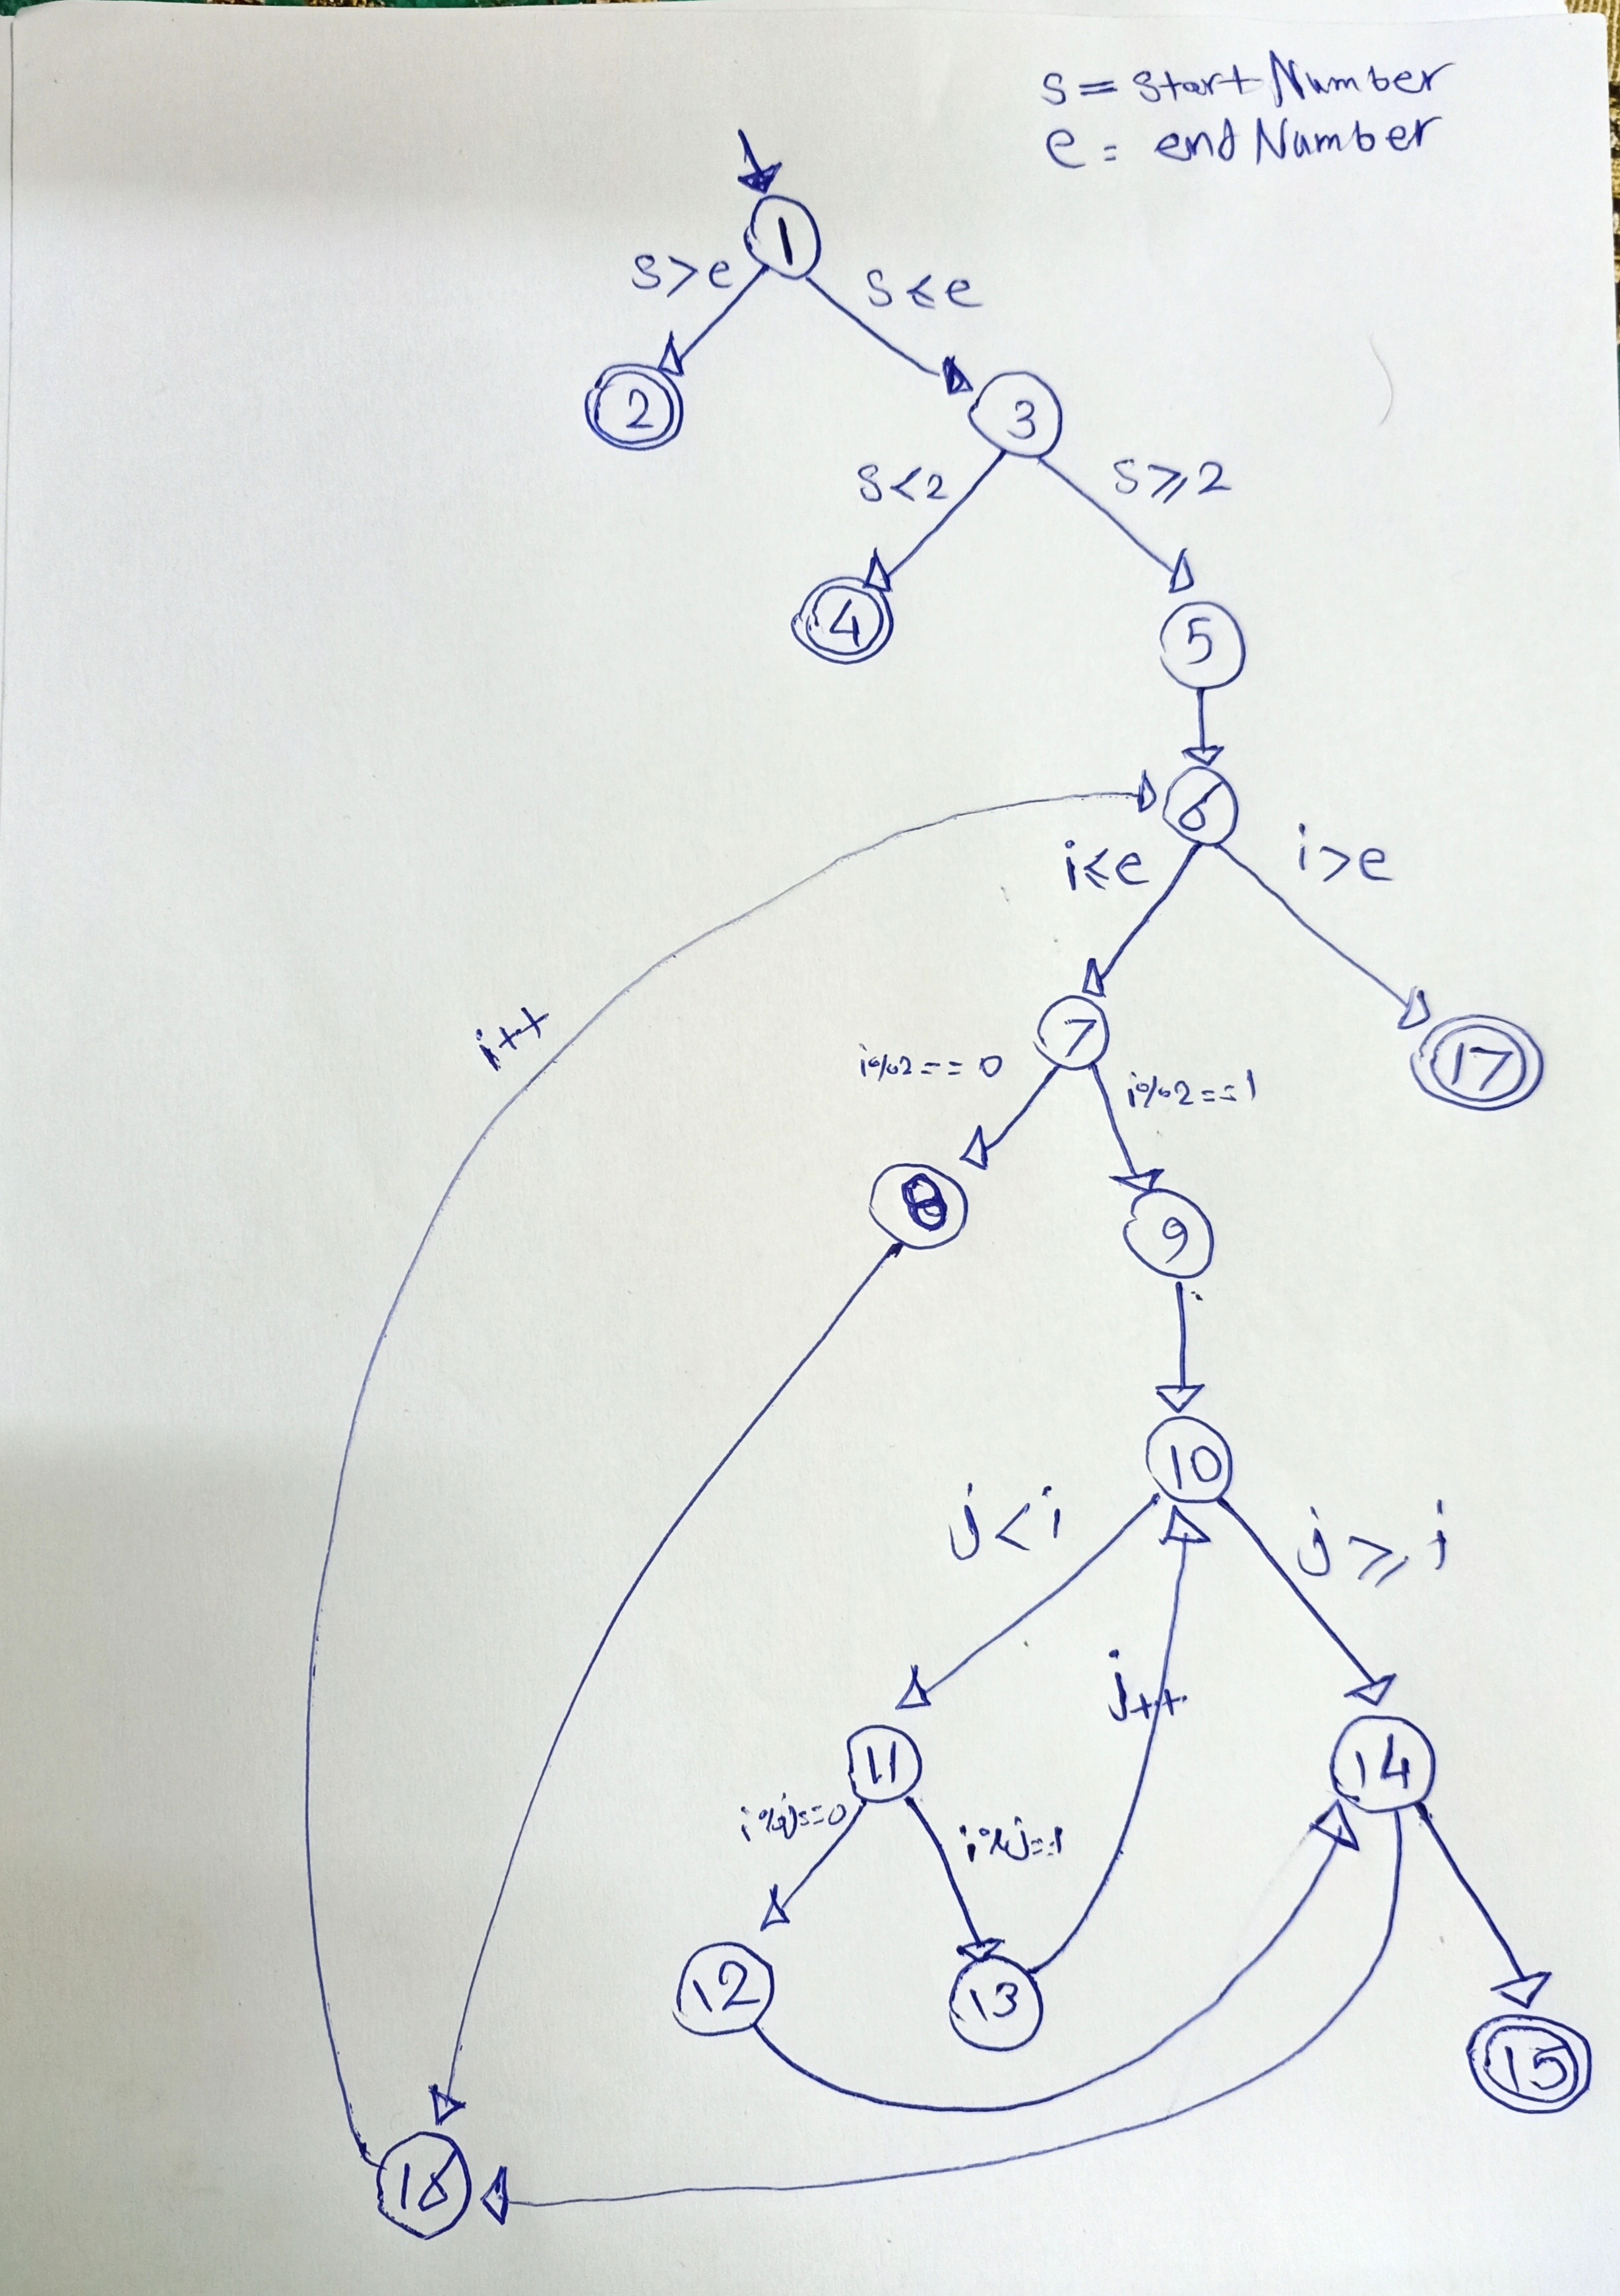 s = start Number
e = end Number
1
s>e
s⩽e
2
3
s<2
s⩾2
4
5
6
i⩽e
i>e
i++
7
17
i%2==0
i%2==1
8
9
10
j<i
j⩾i
j++
11
14
i%j==0
i%j==1
12
13
15
16